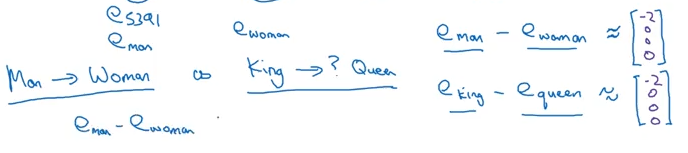 e5391
eman
ewoman
Man → Woman as King → ? Queen
eman - ewoman
eman - ewoman ≈ [-2 0 0 0]
eking - equeen ≈ [-2 0 0 0]